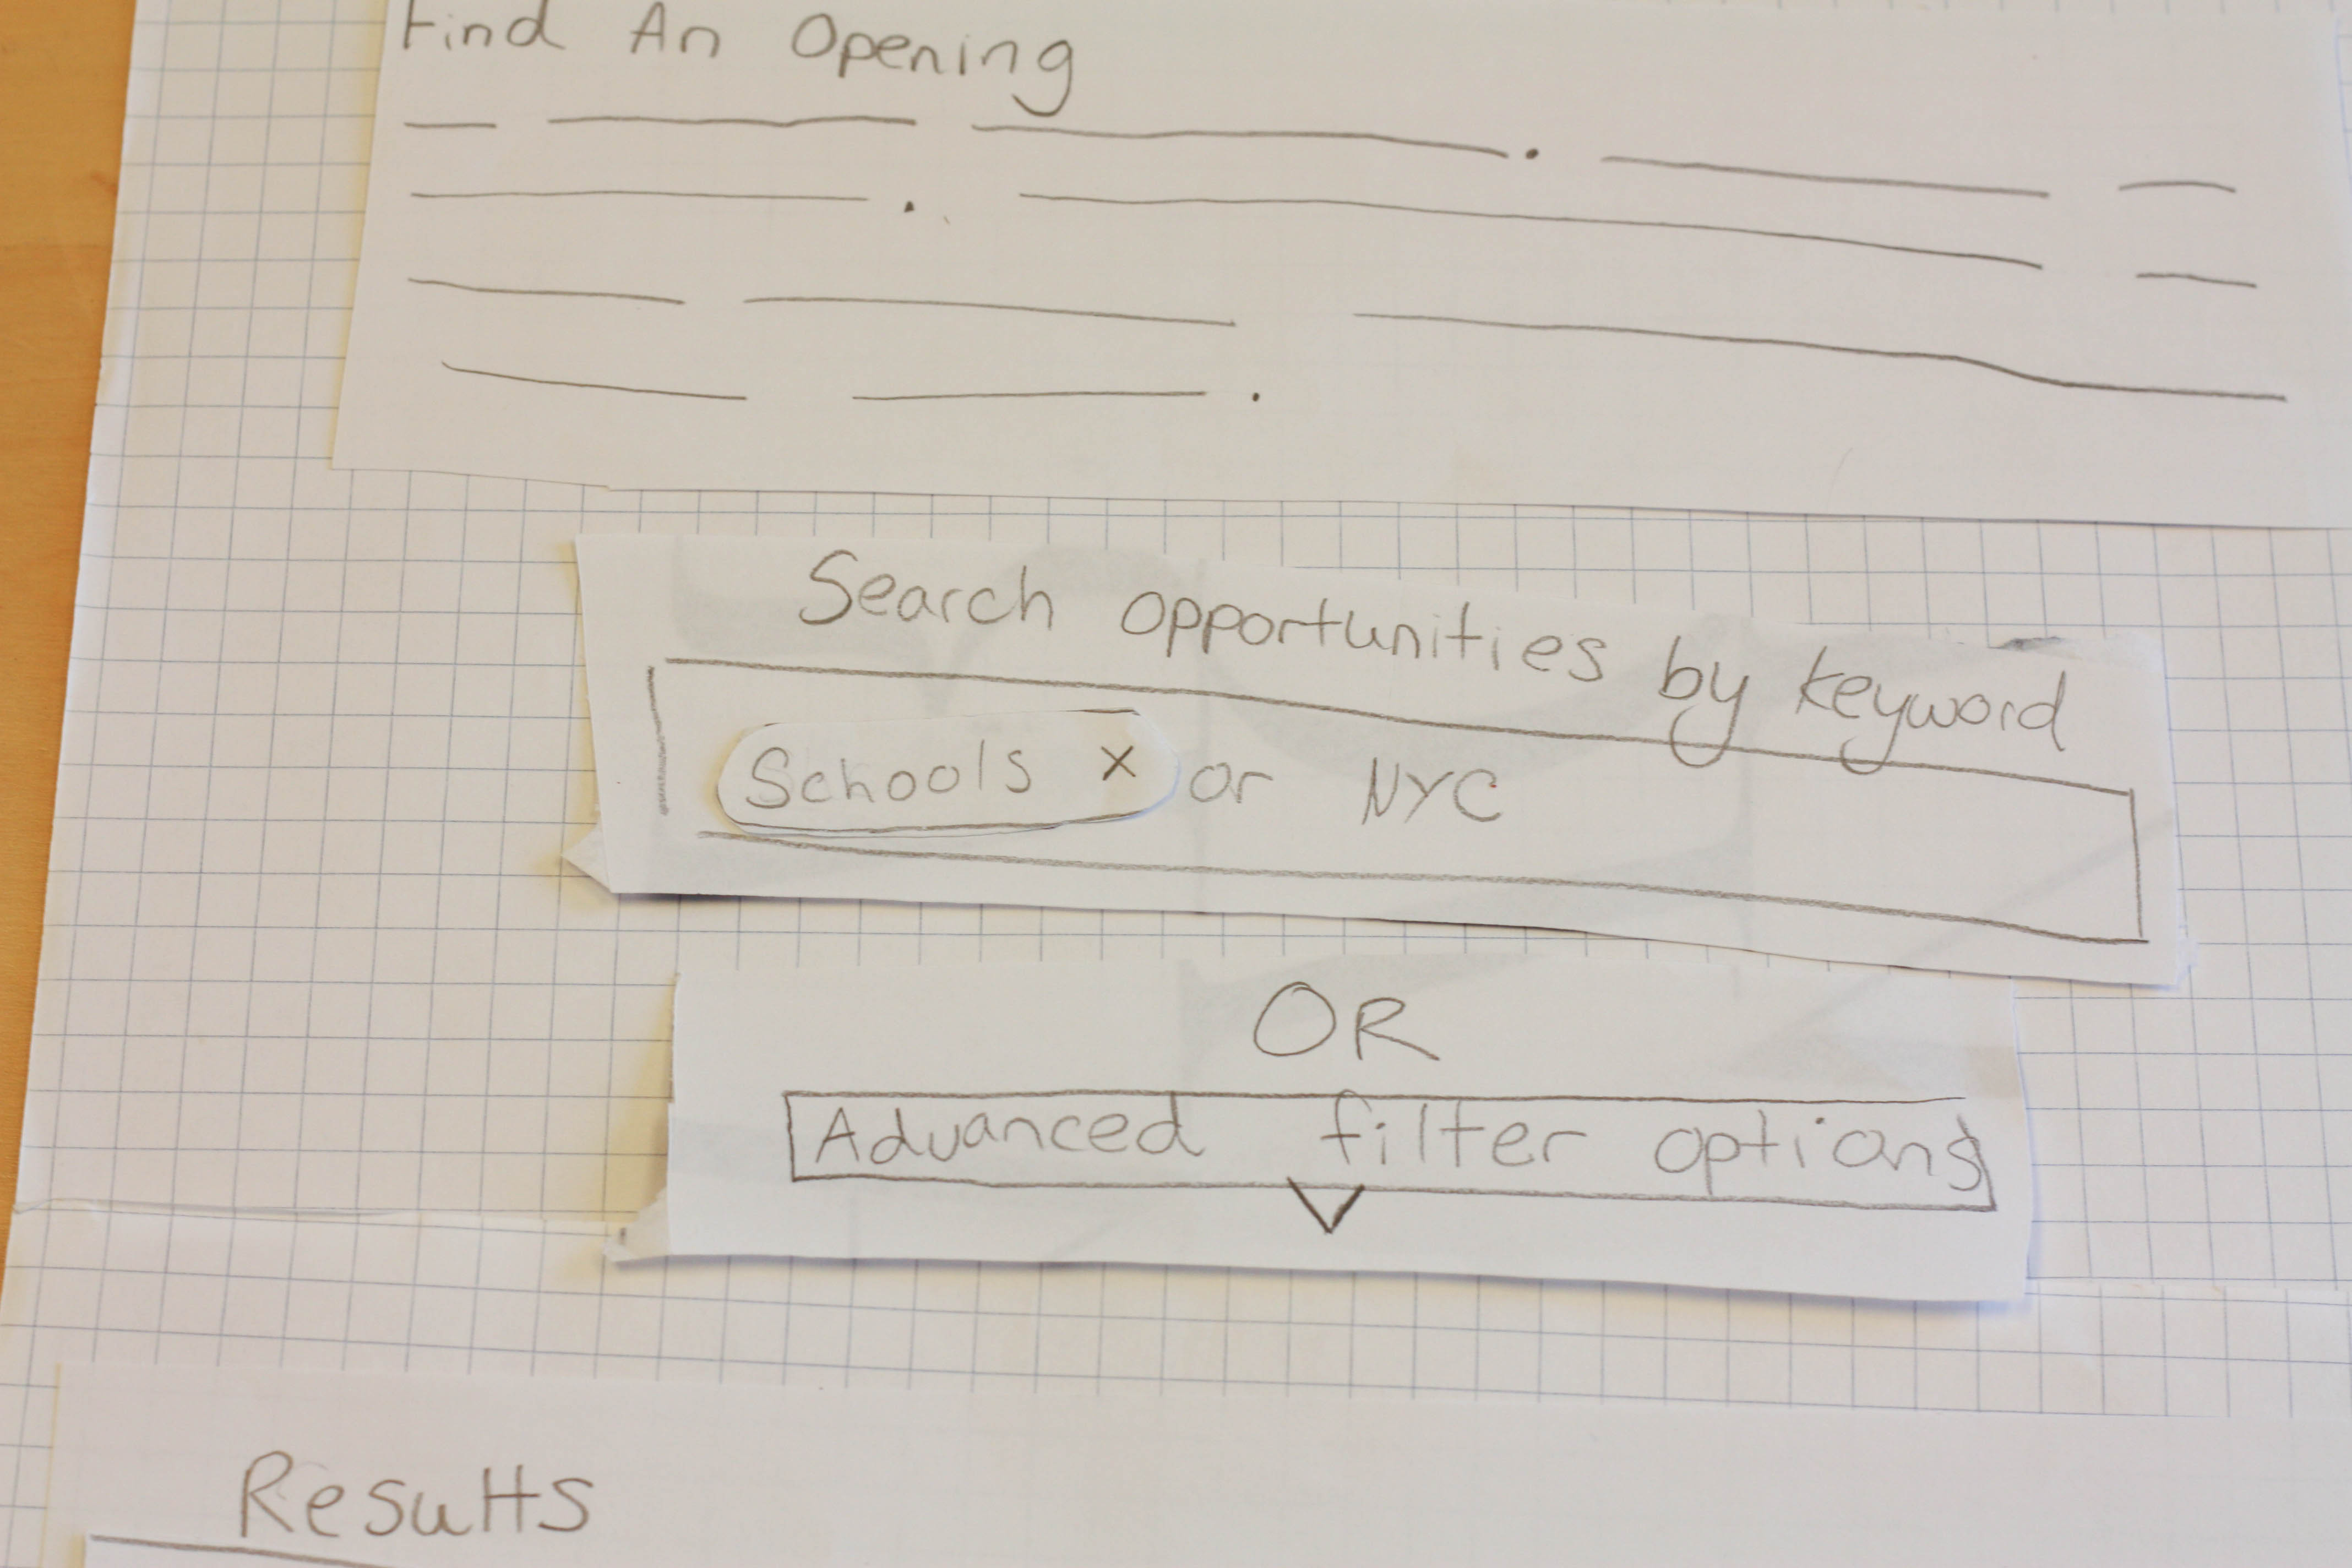 Find An Opening
Search opportunities by keyword
Schools x or NYC
OR
Advanced filter options
Results